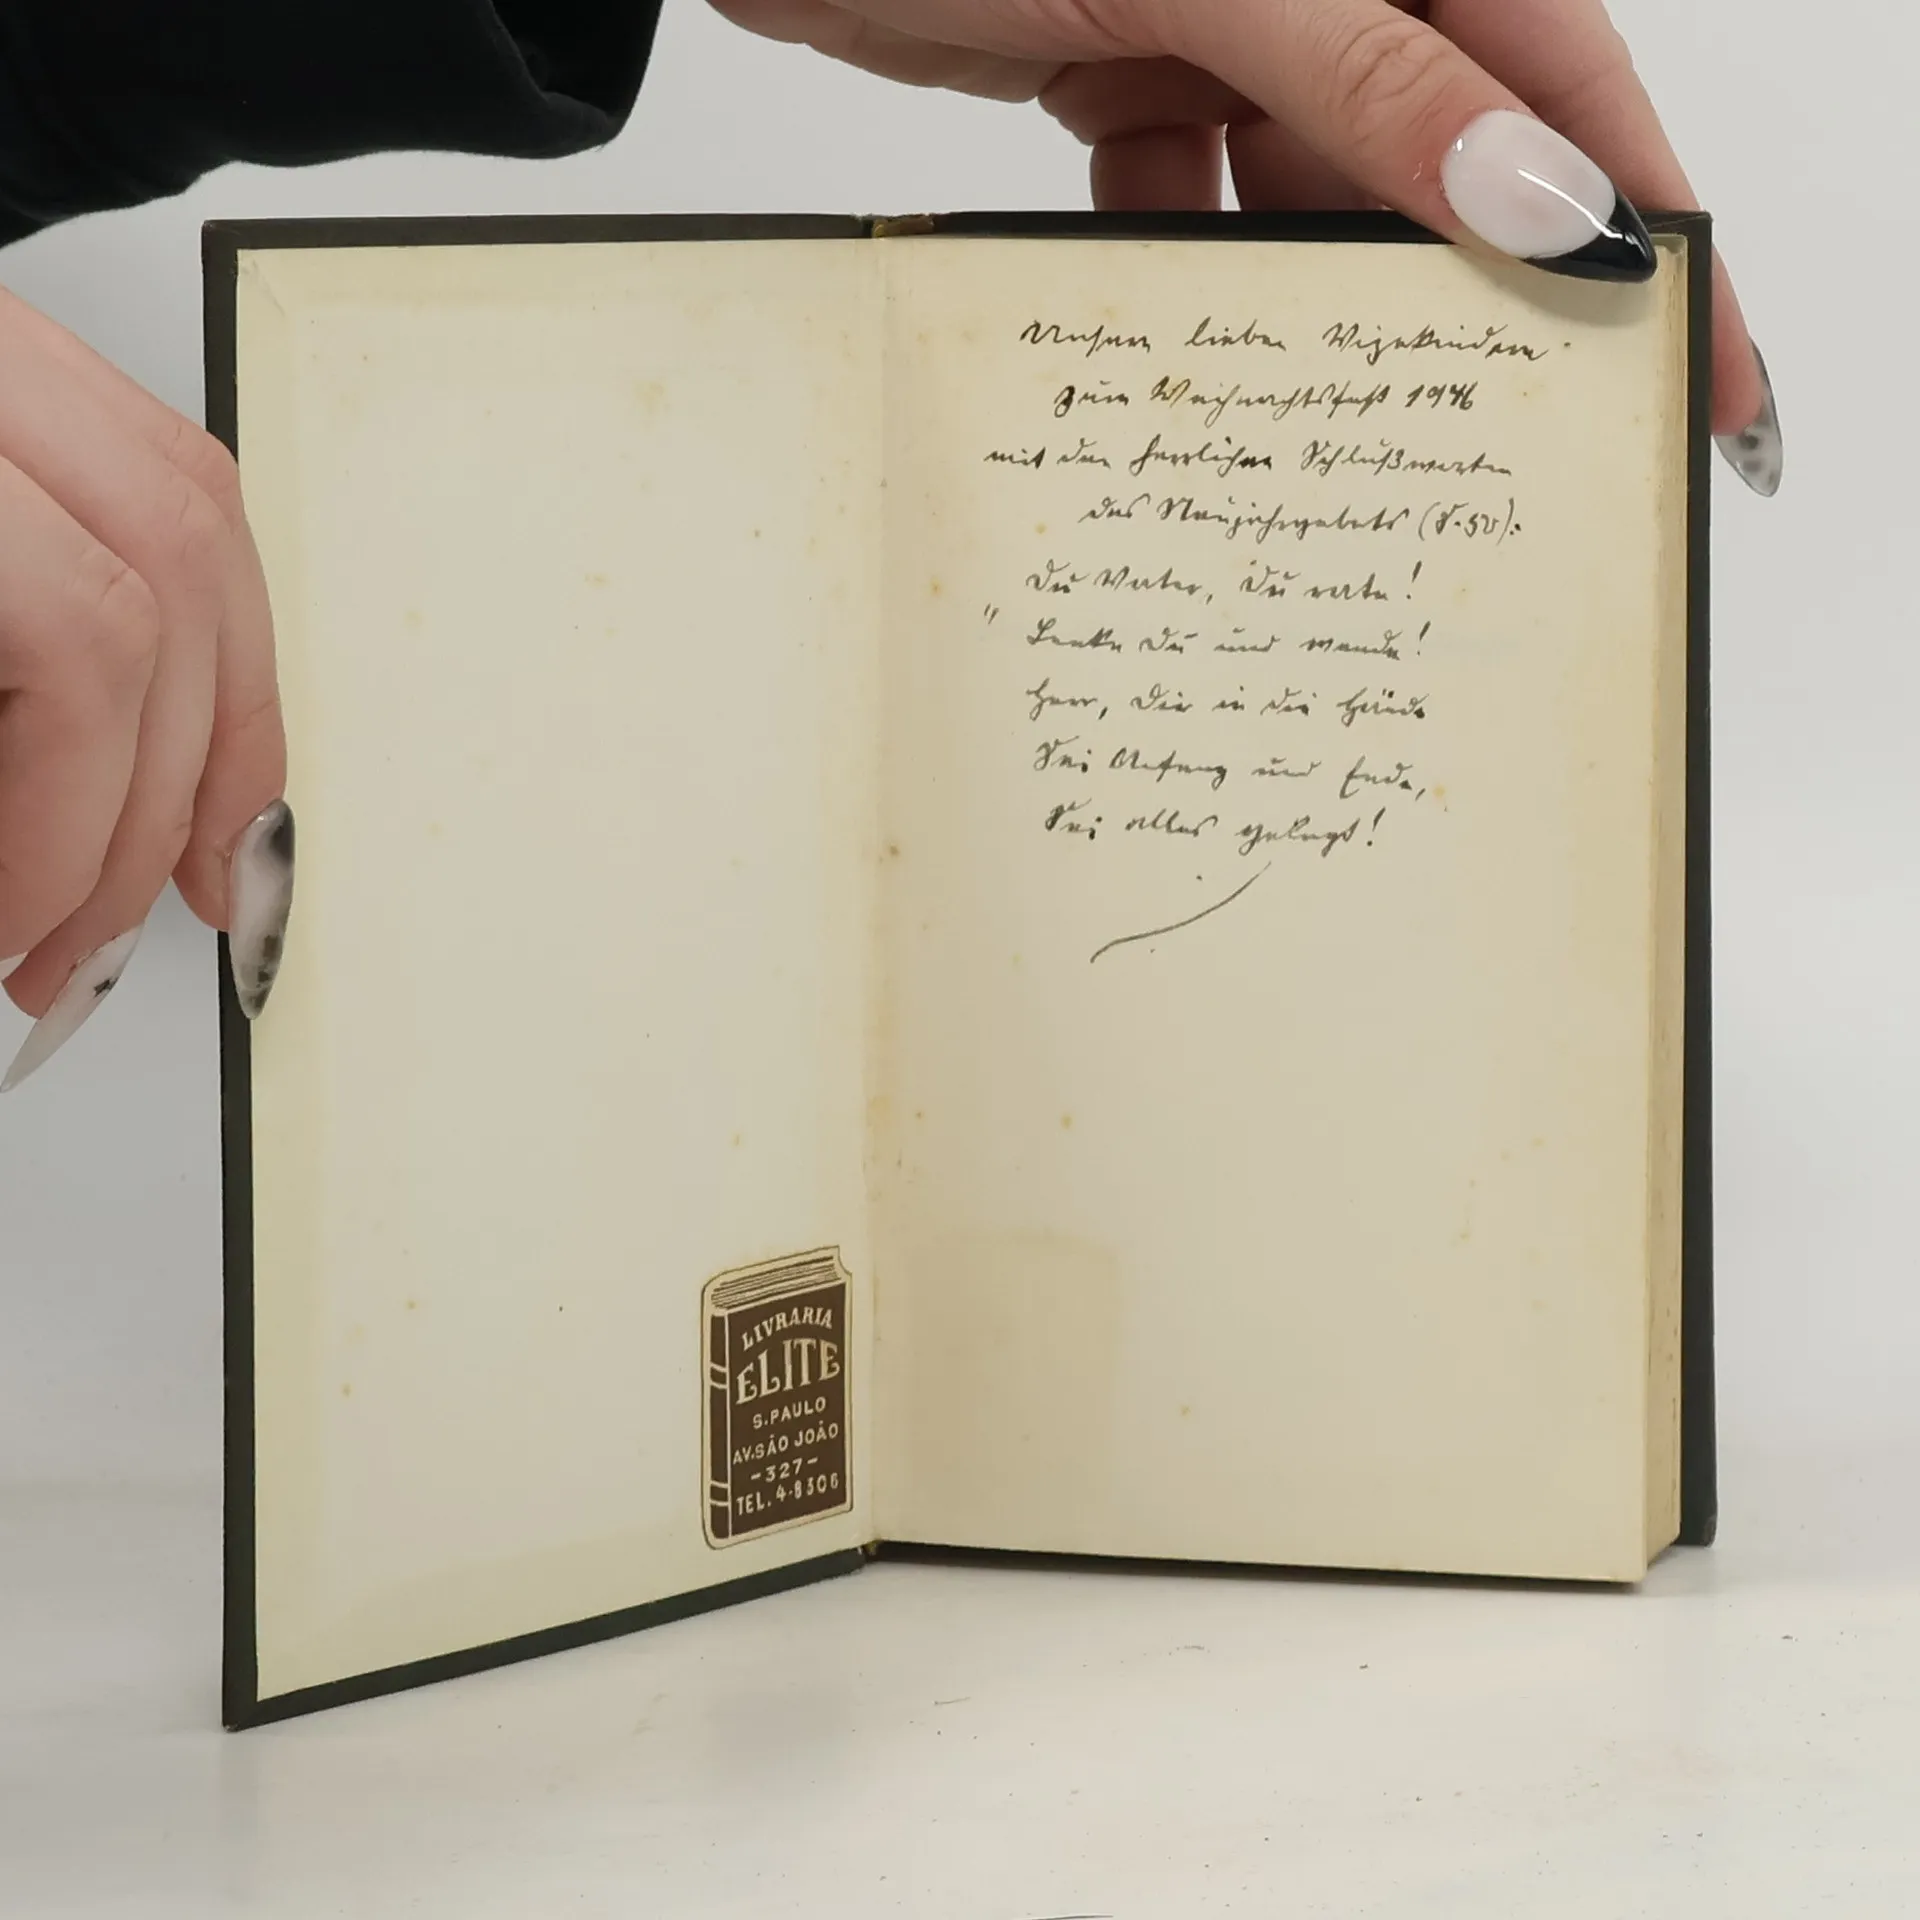 Unseren lieben Vizekindern
zum Weihnachtsfest 1946
mit den herrlichen Schlußworten
des Neujahrgebets (S. 50):
Du Vater, Du rate!
" Lenke Du und wende!
Herr, Dir in die Hände
Sei Anfang und Ende,
Sei alles gelegt!
LIVRARIA
ELITE
S. PAULO
AV. SÃO JOÃO
-327-
TEL. 4-8306